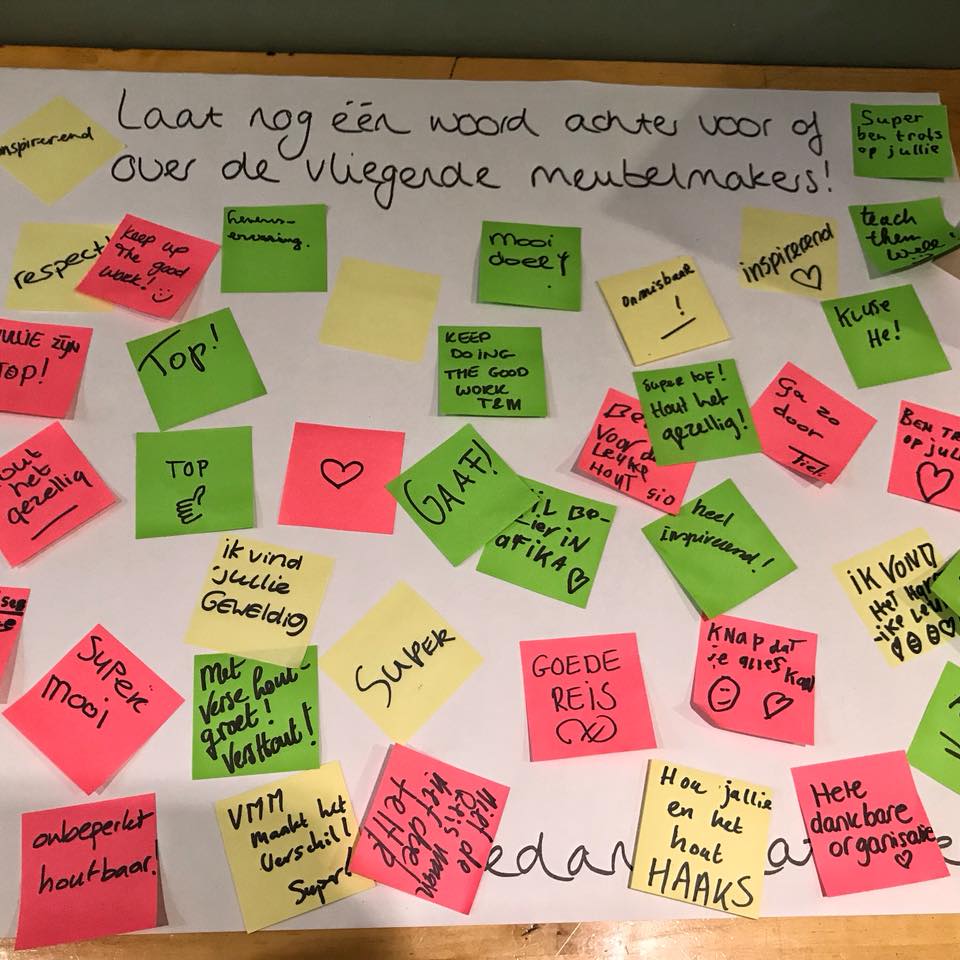 Laat nog één woord achter voor of
over de vliegende meubelmakers!
inspirerend
Super
ben trots
op jullie
respect!
Keep up
the good
work!
levens-
ervaring.
mooi
doel!
onmisbaar
!
inspirerend
teach
them
well!
JULLIE ZIJN
TOP!
TOP!
KEEP
DOING
THE GOOD
WORK
T&M
KLUSE
He!
super tof!
Hout het
gezellig!
voor de
Leuke
HOUT
Ga zo
door
BEN TR
op jull
hout
het
gezellig
TOP
GAAF!
AFIKA
heel
inspirerend!
ik vind
jullie
GEWELDIG
iK VOND
Het
SUPER
mooi
Met
verse hout
groet!
VersHout!
SUPER
GOEDE
REIS
KNAP dat
je alles
kan
onbeperkt
houtbaar!
VMM
maakt het
verschil!
Super!
Hou jullie
en het
hout
HAAKS
Hele
dankbare
organisatie
edan